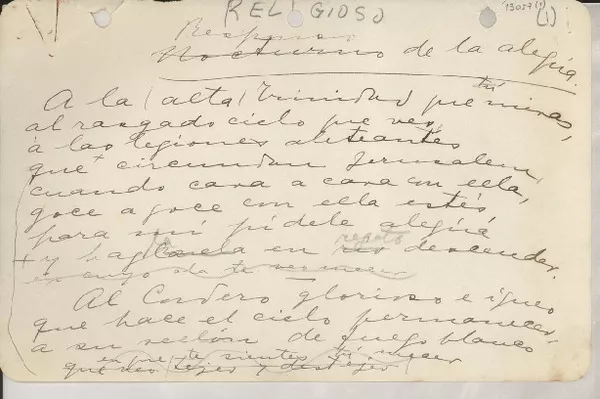 RELIGIOSO
13027 (1)
(1)
Responso
Nocturno de la alegría.
A la (alta) Trinidad que tú miras,
al rasgado cielo que ves,
a las legiones aleteantes
que circundan Jerusalem,
cuando cara a cara con ella,
goce a goce con ella estés
para mí pídele alegría
+ y hazla en regato descender.
en cuya ola te
Al Cordero glorioso e ígneo
que hace el cielo permanecer
a su vellón de fuego blanco
en que te sientes tú mecer
que veo tejer y destejer